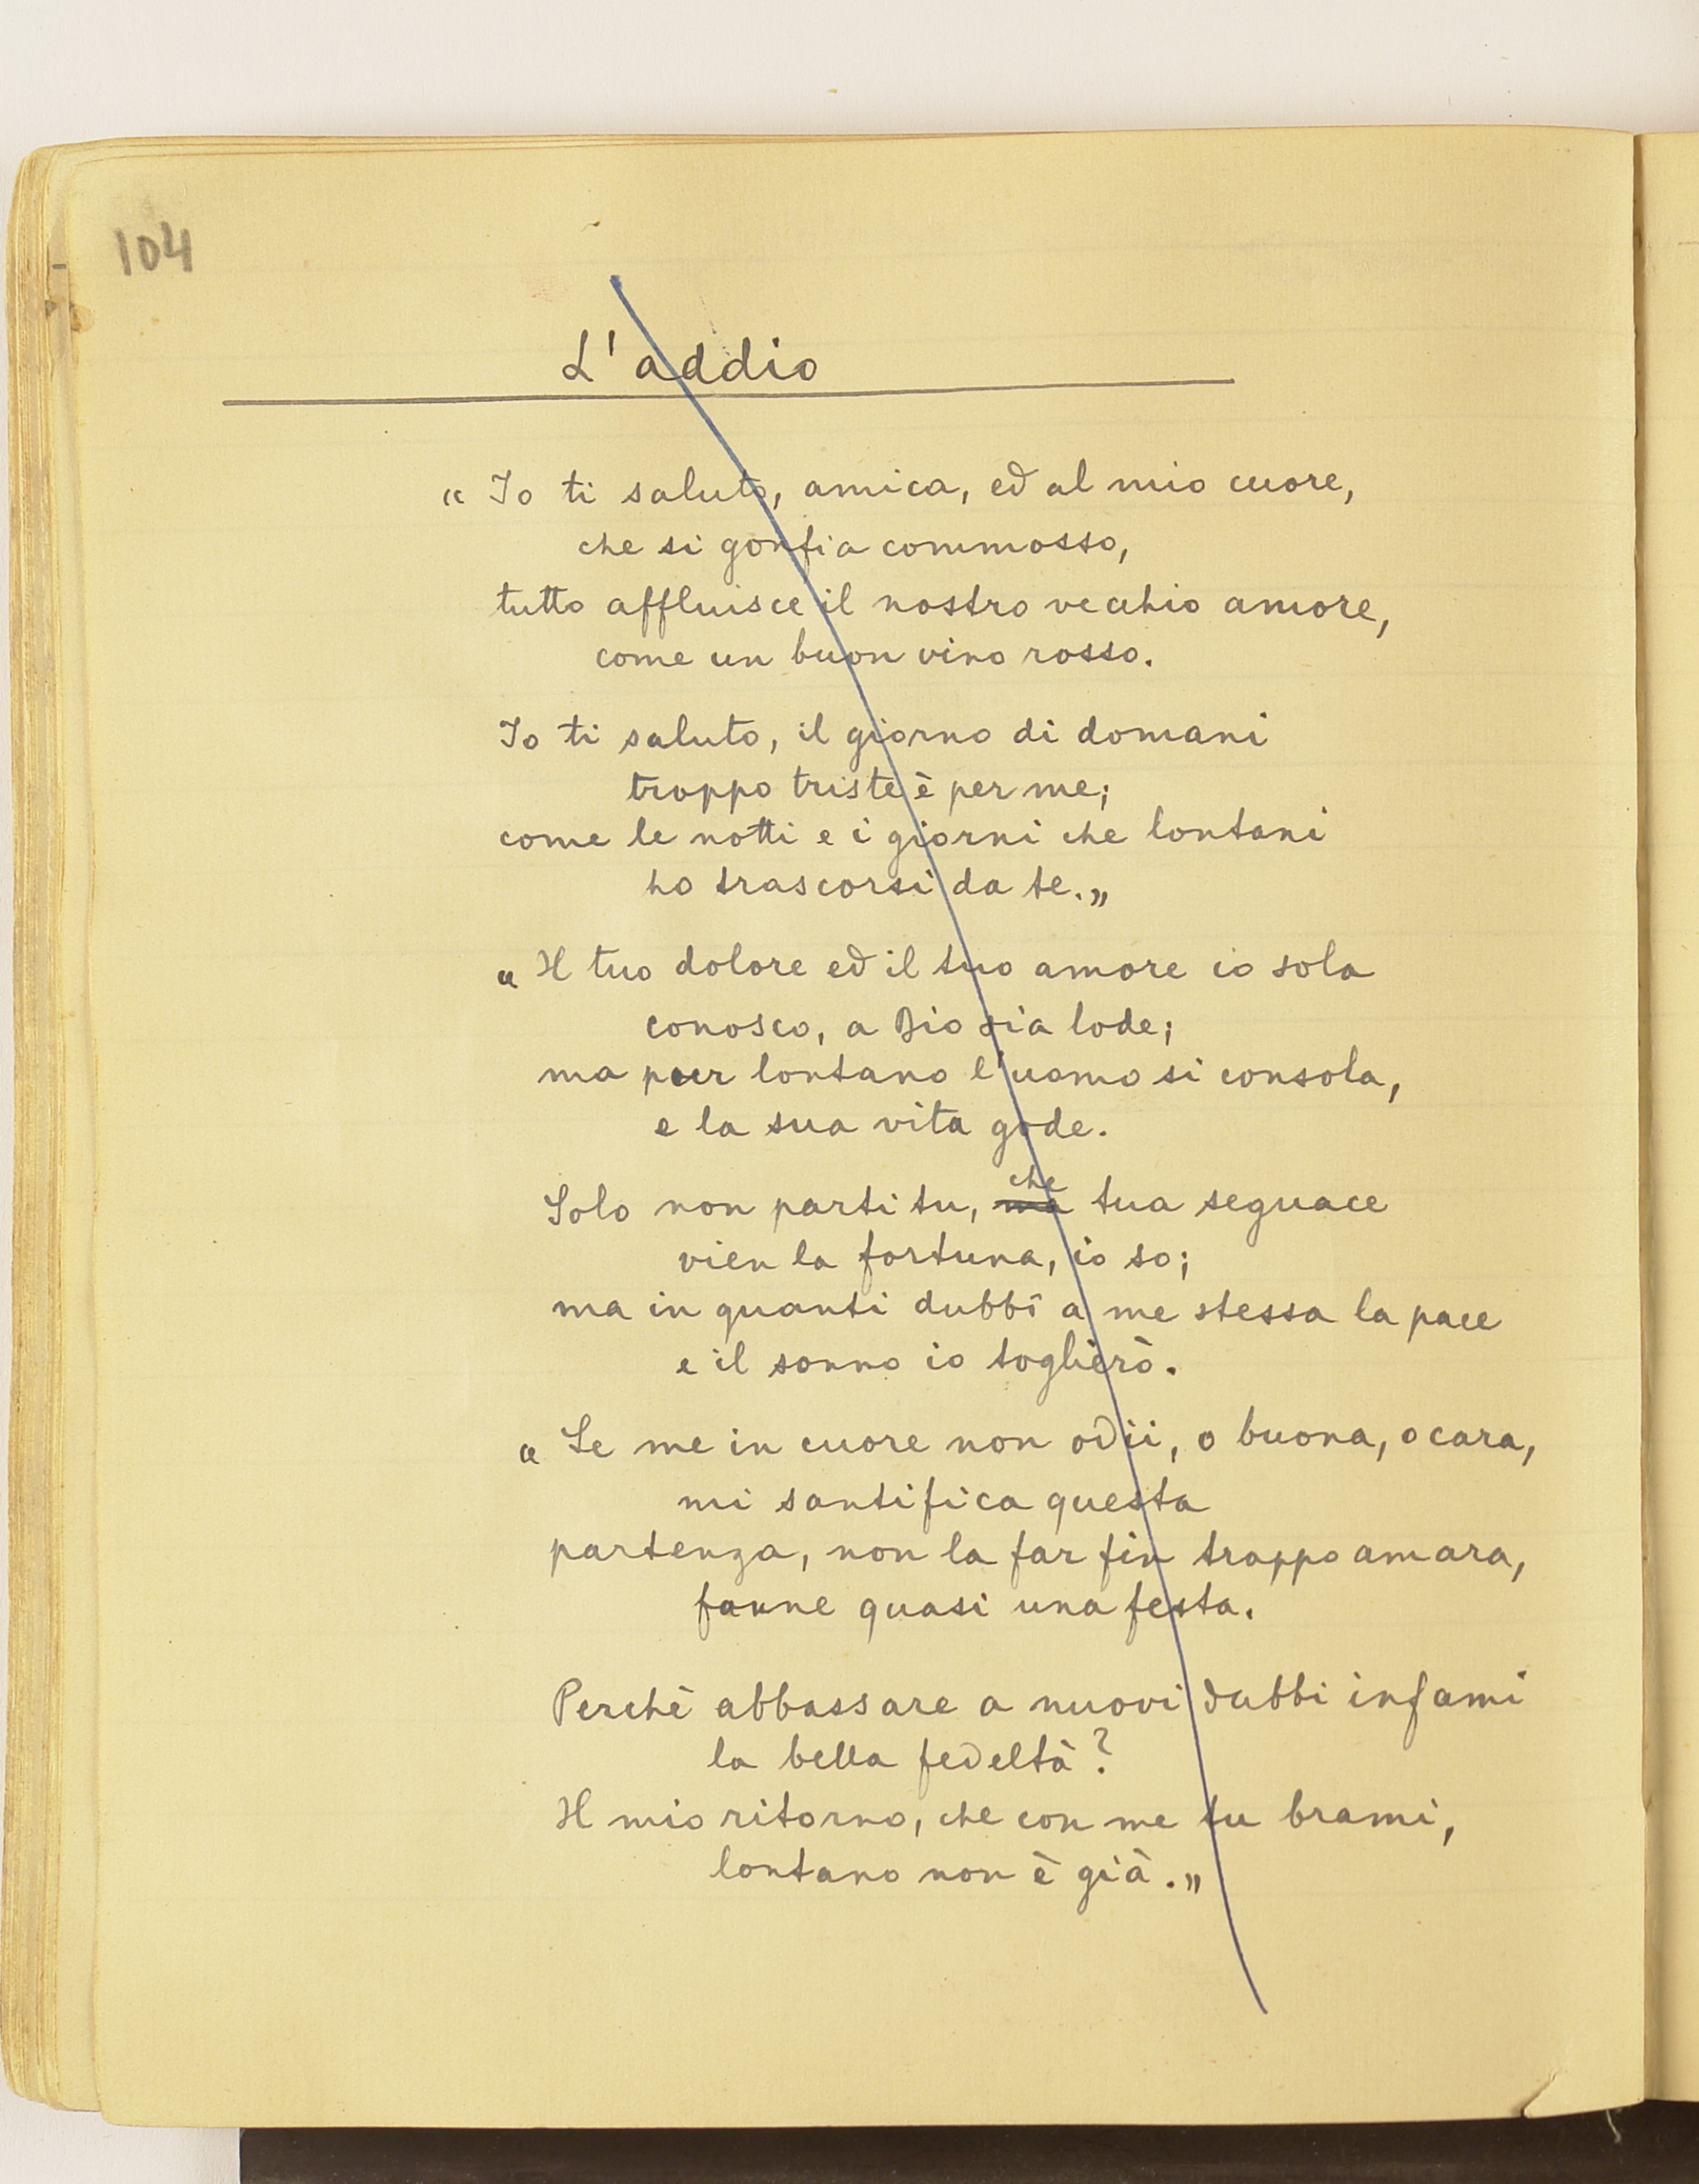 104
L'addio
“ Io ti saluto, amica, ed al mio cuore,
che si gonfia commosso,
tutto affluisce il nostro vecchio amore,
come un buon vino rosso.
Io ti saluto, il giorno di domani
troppo triste è per me;
come le notti e i giorni che lontani
ho trascorsi da te.„
“ Il tuo dolore ed il tuo amore io sola
conosco, a Dio sia lode;
ma pur lontano l'uomo si consola,
e la sua vita gode.
che
Solo non parti tu, ma tua seguace
vien la fortuna, io so;
ma in quanti dubbî a me stessa la pace
e il sonno io toglierò.
“ Se me in cuore non odii, o buona, o cara,
mi santifica questa
partenza, non la far fin troppo amara,
fanne quasi una festa.
Perchè abbassare a nuovi dubbi infami
la bella fedeltà?
Il mio ritorno, che con me tu brami,
lontano non è già.„